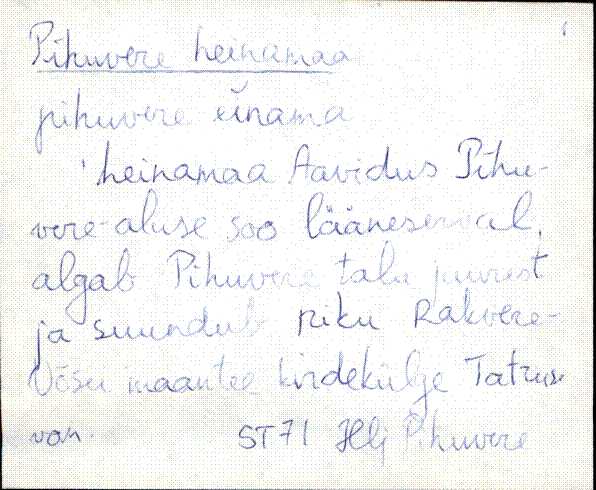 Pihuvere heinamaa
pihuvere einama
heinamaa Aavidus Pihu-
vere-aluse soo lääneserval,
algab Pihuvere talu juurest
ja suundub piku Rakvere-
Võsu maantee kirdekülge
ST71 Hlj Pihuvere